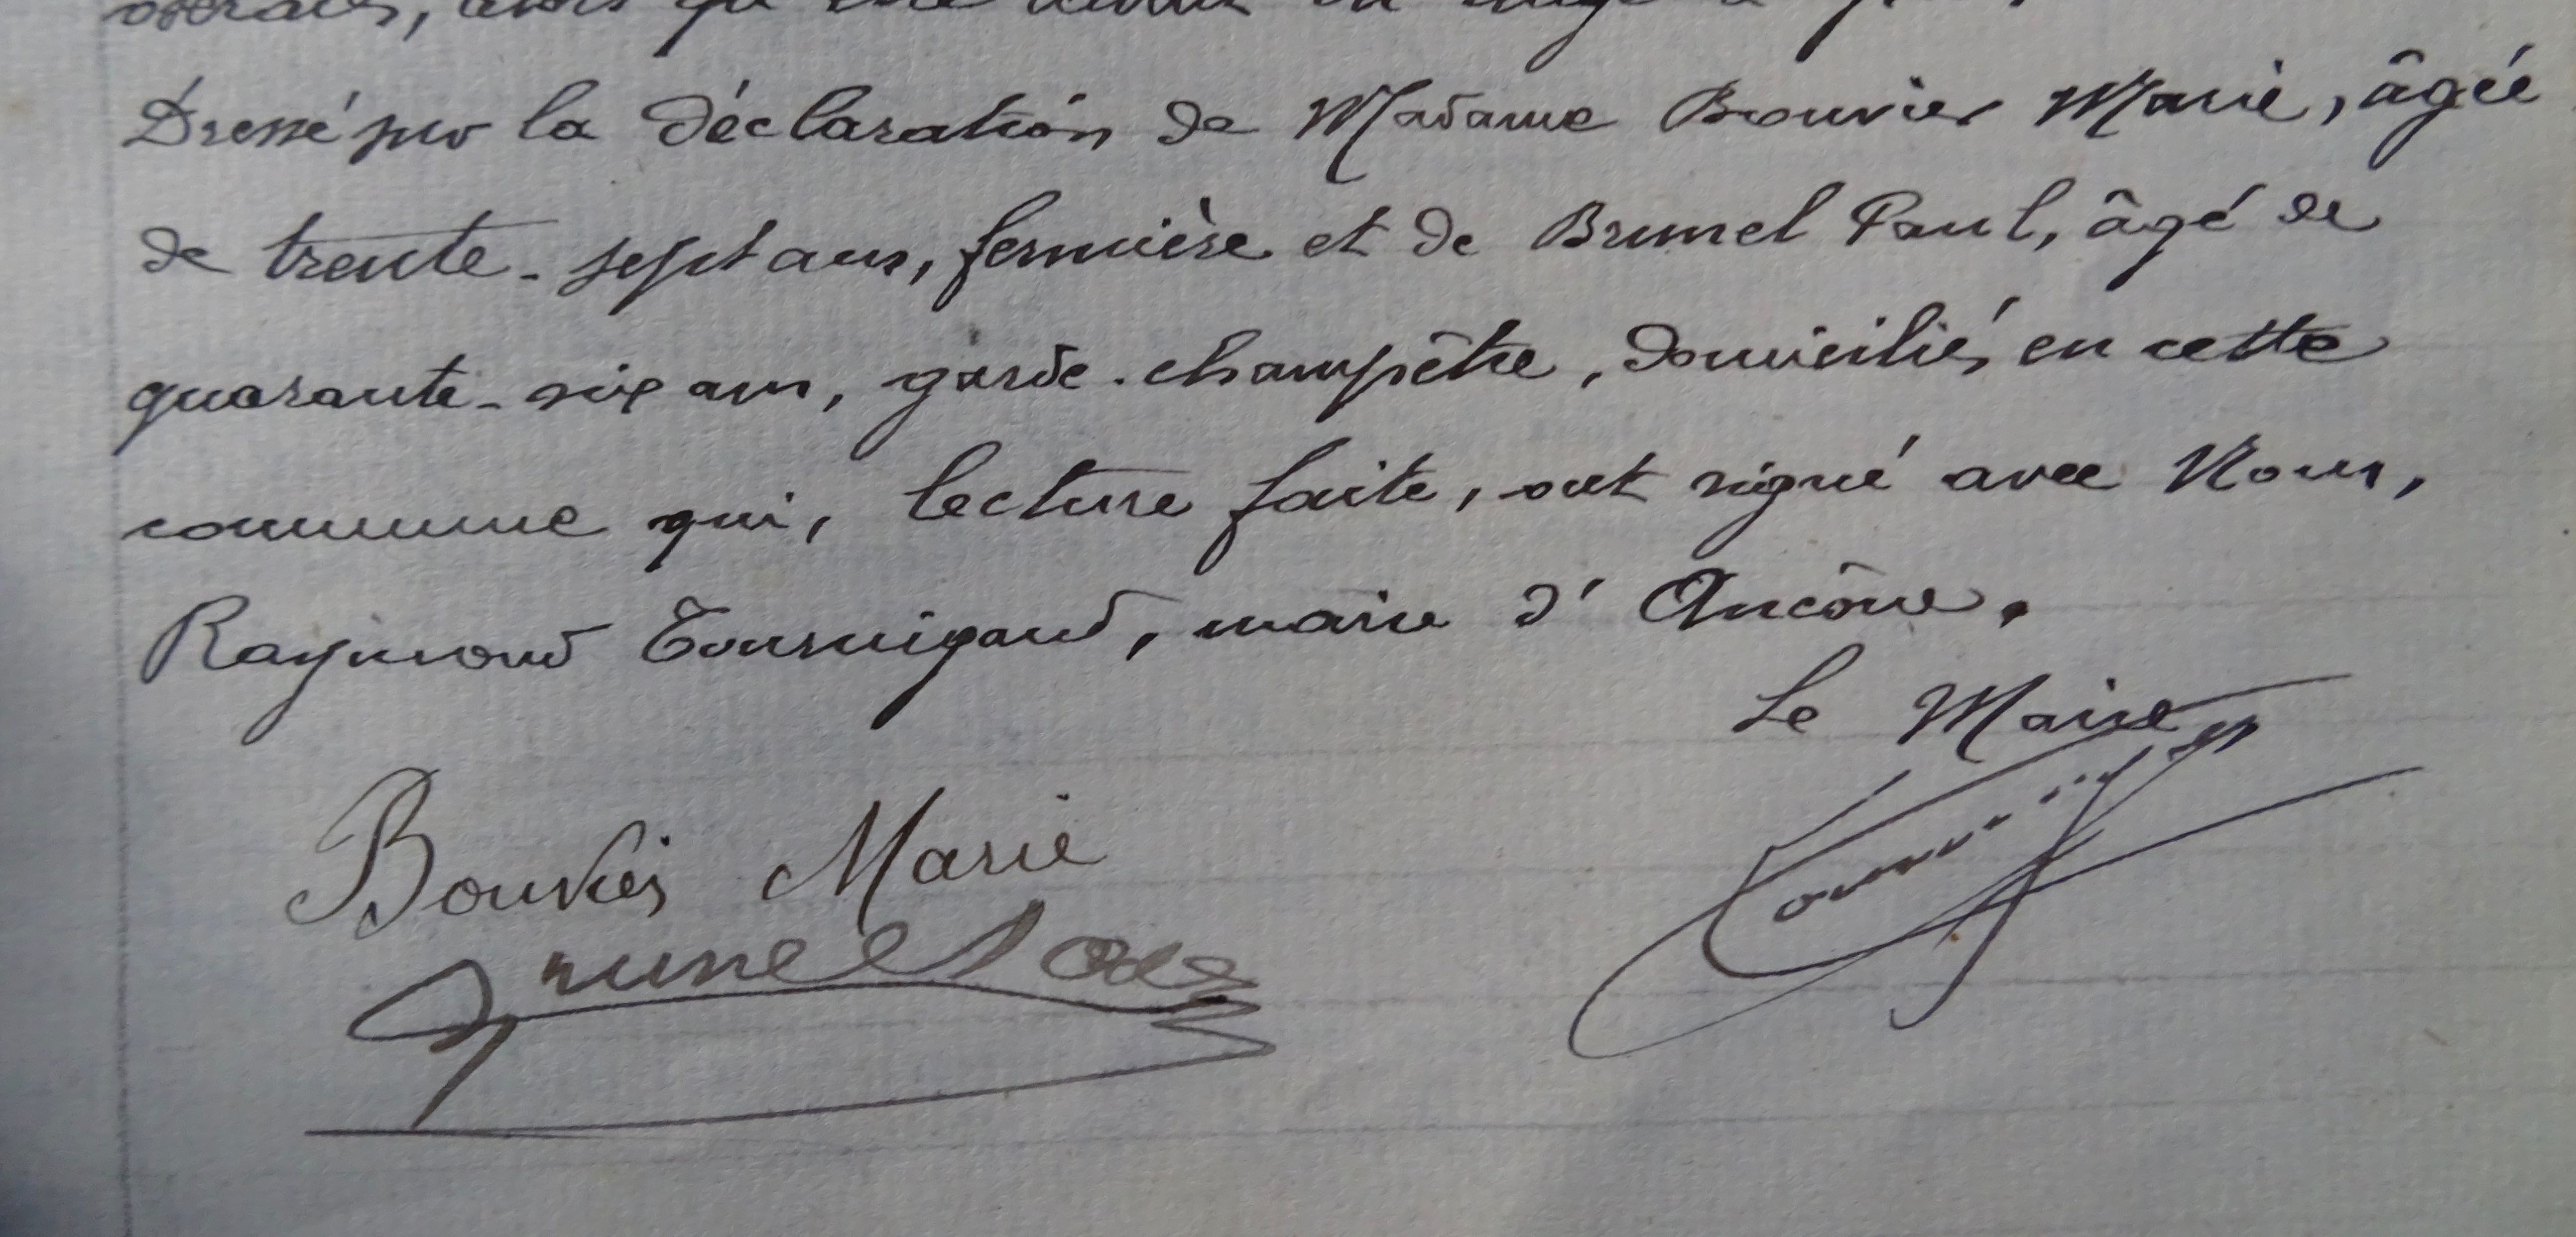 Dressé sur la déclaration de Madame Bouvier Marie, âgée
de trente-sept ans, fermière et de Brunel Paul, âgé de
quarante-six ans, garde-champêtre, domiciliés en cette
commune qui, lecture faite, ont signé avec Nous,
Raymond Tournigand, maire d'Ancône.
Le Maire
Bouvier Marie
Brunel